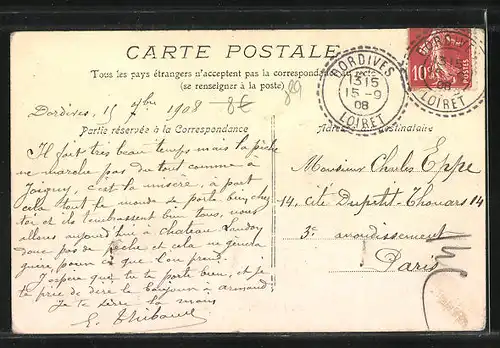 CARTE POSTALE
Tous les pays étrangers n'acceptent pas la correspondance au recto
(se renseigner à la poste)
DORDIVES
13 15
15 -9
08
LOIRET
10
POSTES
Dordives, 15 7bre 1908
8€
Partie réservée à la Correspondance
Il fait très beau temps mais la pêche
ne marche pas du tout comme à
Joigny, c'est la misère, à part
cela tout le monde se porte bien, chez
toi et ils t'embrassent bien tous, nous
allons aujourd'hui à chateau Landon
donc pas de pêche et cela ne
guère, pour ce que l'on prend.
J'espère que tu te porte bien, et je
te prie de dire le bonjour à armand
Je te serre la main
E. Thibault
Monsieur Charles Eppe
14, cité Dupetit-Thouars 14
3e arrondissement
Paris